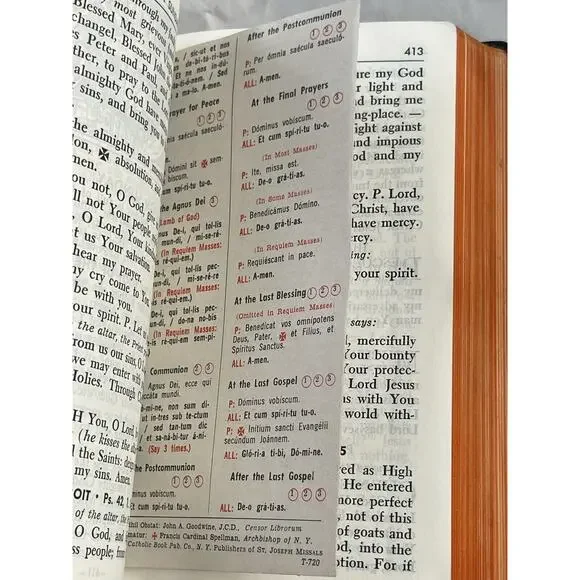 most griev
Blessed Mary, ever
changel, Blessed John
es Peter and Paul, and
ther, to pray to the
almighty God have
sins, and bring you
the almighty and
ion, ✠ absolution,
men.
ou not, O God, give
ll not Your people,
O Lord, Your
et us Your salvation
hear my prayer.
y cry come to You
be with you.
your spirit. P. Let
the altar, the Priest
rom us our sins, O
we may enter with
Holies. Through C
H You, O Lord
(he kisses the
the Saints:
my sins. Amen
OIT • Ps. 42,
of the altar, the
O God, and
ss people; from
/ sic-ut et nos
de-bi-tó-ri-bus
Et ne nos in-dú-
/ Sed
a ma-lo. A-men.
rayer for Peace
ómnia saécula saeculó-
Dómini sit ✠ sem-
um spi-rí-tu tu-o.
the Agnus Dei ① ②
(Lamb of God)
De-i, qui tol-lis
mun-di, / mi-se-ré-re
(In Requiem Masses:
is ré-qui-em.)
De-i, qui tol-lis pec-
mun-di, / mi-se-ré-re
(In Requiem Masses:
is ré-qui-em.)
De-i, qui tol-lis pec-
do-na no-bis
(In Requiem Masses:
is ré-qui-em sem-pi-
Communion ② ③
Agnus Dei, ecce qui
eccáta mundi.
ó-mi-ne, non sum di-
ut in-tres sub te-ctum
sed tan-tum dic
et sa-ná-bi-tur á-ni-
(Say 3 times.)
the Postcommunion
① ② ③
óminus vobíscum.
um spí-ri-tu tu-o.
After the Postcommunion
① ② ③
P: Per ómnia saécula saeculó-
rum.
ALL: A-men.
At the Final Prayers
① ② ③
P: Dóminus vobíscum.
ALL: Et cum spí-ri-tu tu-o.
(In Most Masses)
P: Ite, missa est.
ALL: De-o grá-ti-as.
(In Some Masses)
P: Benedicámus Dómino.
ALL: De-o grá-ti-as.
(In Requiem Masses)
P: Requiéscant in pace.
ALL: A-men.
At the Last Blessing ① ② ③
(Omitted in Requiem Masses)
P: Benedicat vos omnípotens
Deus, Pater, ✠ et Fílius, et
Spíritus Sanctus.
ALL: A-men.
At the Last Gospel ① ② ③
P: Dóminus vobíscum.
ALL: Et cum spí-ri-tu tu-o.
P: ✠ Inítium sancti Evangélii
secúndum Joánnem.
ALL: Gló-ri-a ti-bi, Dó-mi-ne.
After the Last Gospel
① ② ③
ALL: De-o grá-ti-as.
ihil Obstat: John A. Goodwine, J.C.D., Censor Librorum
matur: ✠ Francis Cardinal Spellman, Archbishop of N. Y.
Catholic Book Pub. Co., N. Y. Publishers of ST. JOSEPH MISSALS
T-720
413
ure my God
r light and
d bring me
ng-place. —
ight against
and impious
od and my
cy. P. Lord,
Christ, have
have mercy.
rcy.
ing:
your spirit.
says:
, mercifully
Your bounty
Your protec-
Lord Jesus
s with You
world with-
5
ered as High
He entered
more perfect
not of this
of goats and
od, into the
tion. For if